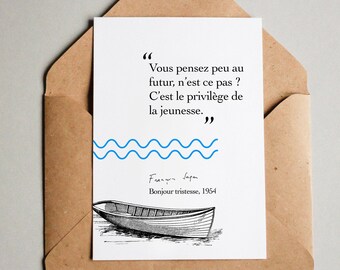 “
Vous pensez peu au
futur, n’est ce pas ?
C’est le privilège de
la jeunesse.
”
Bonjour tristesse, 1954